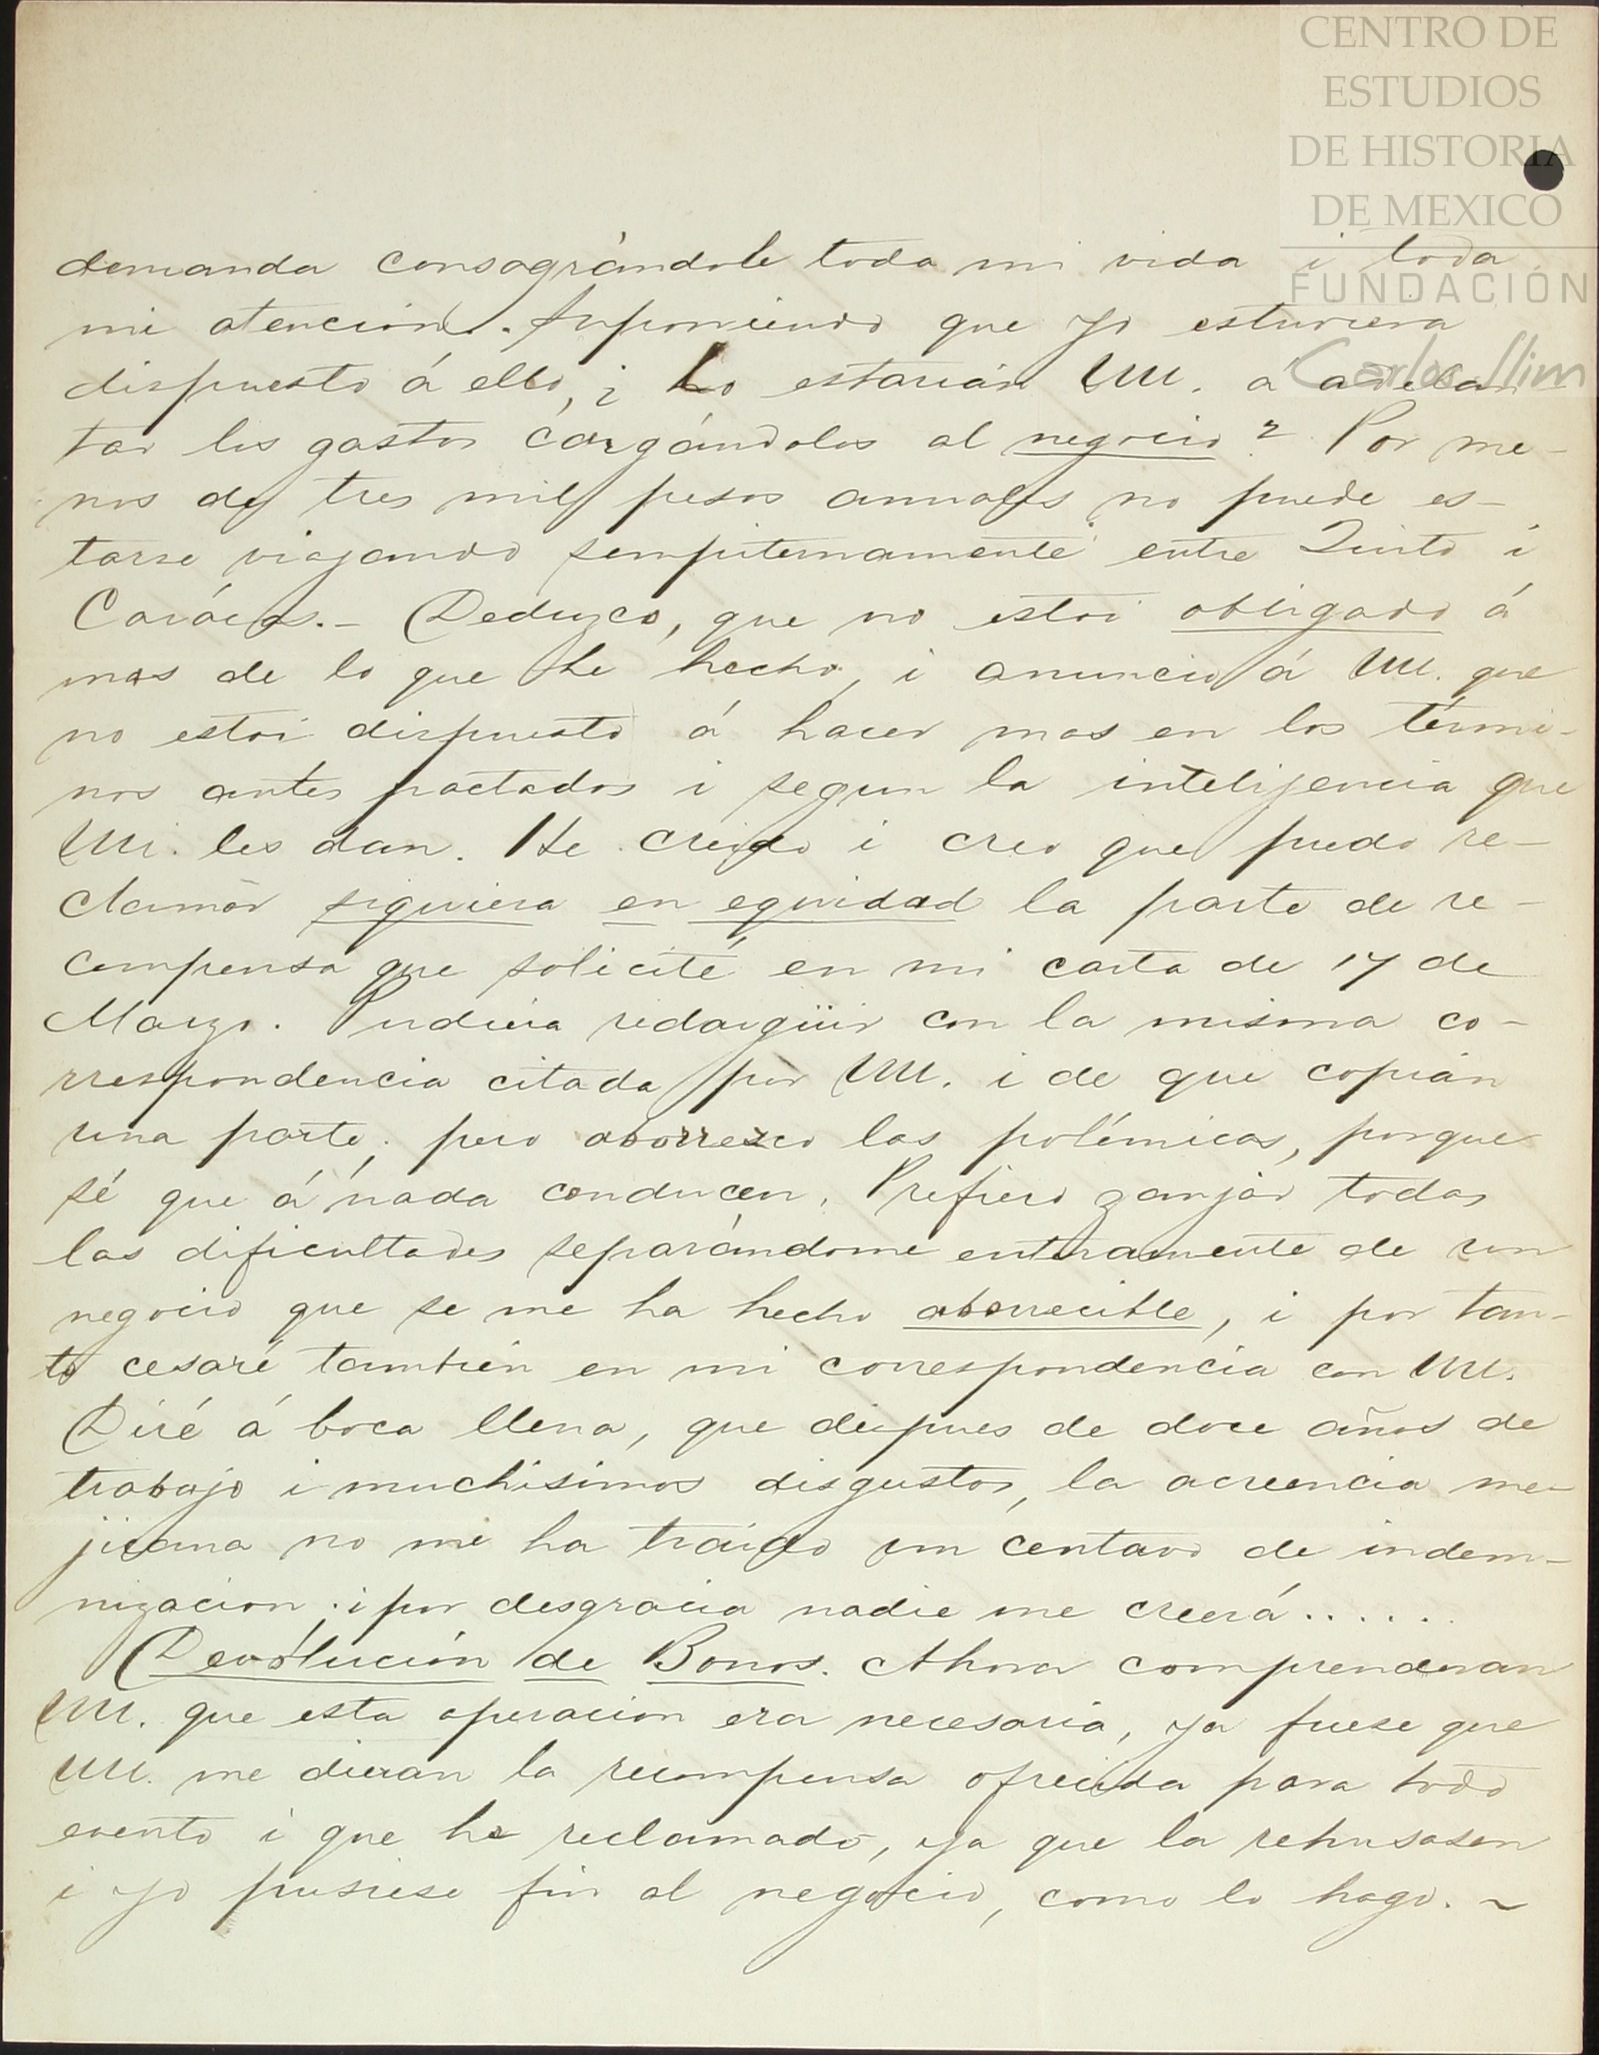 CENTRO DE
ESTUDIOS
DE HISTORIA
DE MEXICO
FUNDACIÓN
Carlos Slim
demanda consagrándole toda mi vida i toda
mi atencion. Suponiendo que yo estuviera
dispuesto á ello, ¿ Lo estarían UU. á adelan
tar los gastos cargándolos al negocio? Por me-
nos de tres mil pesos anuales no puede es-
tarse viajando sempiternamente entre Quito i
Carácas.- Deduzco, que no estoi obligado á
mas de lo que he hecho, i anuncio á UU. que
no estoi dispuesto á hacer mas en los térmi-
nos antes pactados i segun la intelijencia que
UU. les dan. He creido i creo que puedo re-
clamar siquiera en equidad la parte de re-
compensa que solicité en mi carta de 17 de
Marzo. Pudiera redargüir con la misma co-
rrespondencia citada por UU. i de que copian
una parte; pero aborrezco las polémicas, porque
sé que á nada conducen. Prefiero zanjar todas
las dificultades separándome enteramente de un
negocio que se me ha hecho aborrecible, i por tan-
to cesaré también en mi correspondencia con UU.
Diré á boca llena, que despues de doce años de
trabajo i muchísimos disgustos, la acreencia me-
jicana no me ha traído un centavo de indem-
nizacion; i por desgracia nadie me creerá......
Devolución de Bonos. Ahora comprenderan
UU. que esta operacion era necesaria, ya fuese que
UU. me dieran la recompensa ofrecida para todo
evento i que he reclamado, ya que la rehusasen
i yo pusiese fin al negocio, como lo hago. ~